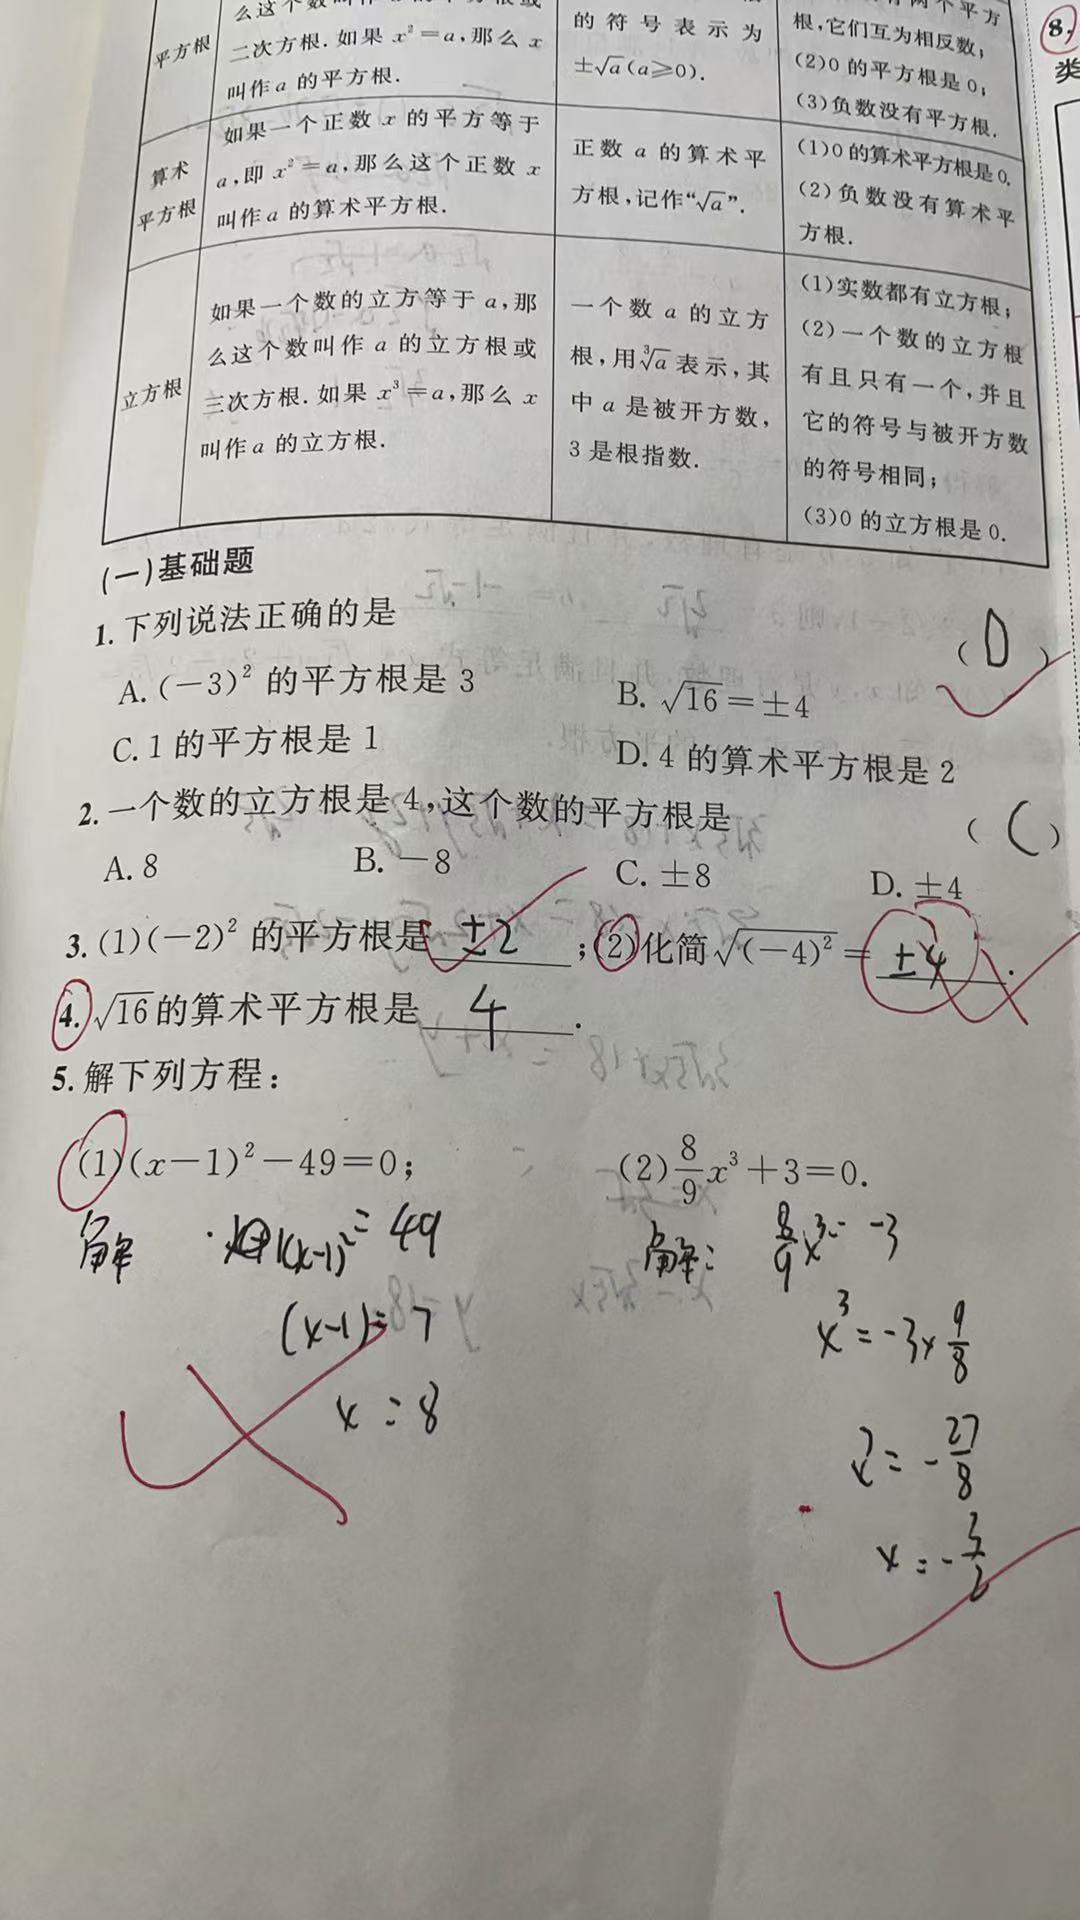 平方根
二次方根.如果 x²=a,那么 x
叫作 a 的平方根.
的符号表示为
±√a(a≥0).
根,它们互为相反数;
(2)0 的平方根是 0;
(3)负数没有平方根.
算术
平方根
如果一个正数 x 的平方等于
a,即 x²=a,那么这个正数 x
叫作 a 的算术平方根.
正数 a 的算术平
方根,记作“√a”.
(1)0 的算术平方根是 0.
(2)负数没有算术平
方根.
立方根
如果一个数的立方等于 a,那
么这个数叫作 a 的立方根或
三次方根.如果 x³=a,那么 x
叫作 a 的立方根.
一个数 a 的立方
根,用∛a 表示,其
中 a 是被开方数,
3 是根指数.
(1)实数都有立方根;
(2)一个数的立方根
有且只有一个,并且
它的符号与被开方数
的符号相同;
(3)0 的立方根是 0.
8.
类
(一)基础题
1.下列说法正确的是 ( D )
A.(-3)² 的平方根是 3 B.√16=±4
C.1 的平方根是 1 D.4 的算术平方根是 2
2.一个数的立方根是 4,这个数的平方根是 ( C )
A.8 B.-8 C.±8 D.±4
3.(1)(-2)² 的平方根是 ±2 ;(2)化简√(-4)²= ±4 .
4.√16的算术平方根是 4 .
5.解下列方程:
(1)(x-1)²-49=0; (2)8/9x³+3=0.
解 (x-1)²=49
(x-1)=7
x=8
解: 8/9x³=-3
x³=-3×9/8
x³=-27/8
x=-3/2